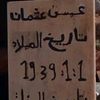 عيسى عثمان
تاريخ الميلاد
1939.1.1